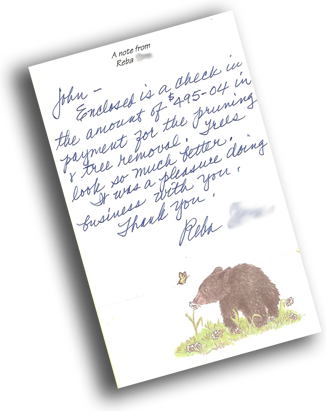 A note from
Reba
John –
Enclosed is a check in
the amount of $495-04 in
payment for the pruning
& tree removal. Trees
look so much better.
It was a pleasure doing
business with you.
Thank you.
Reba